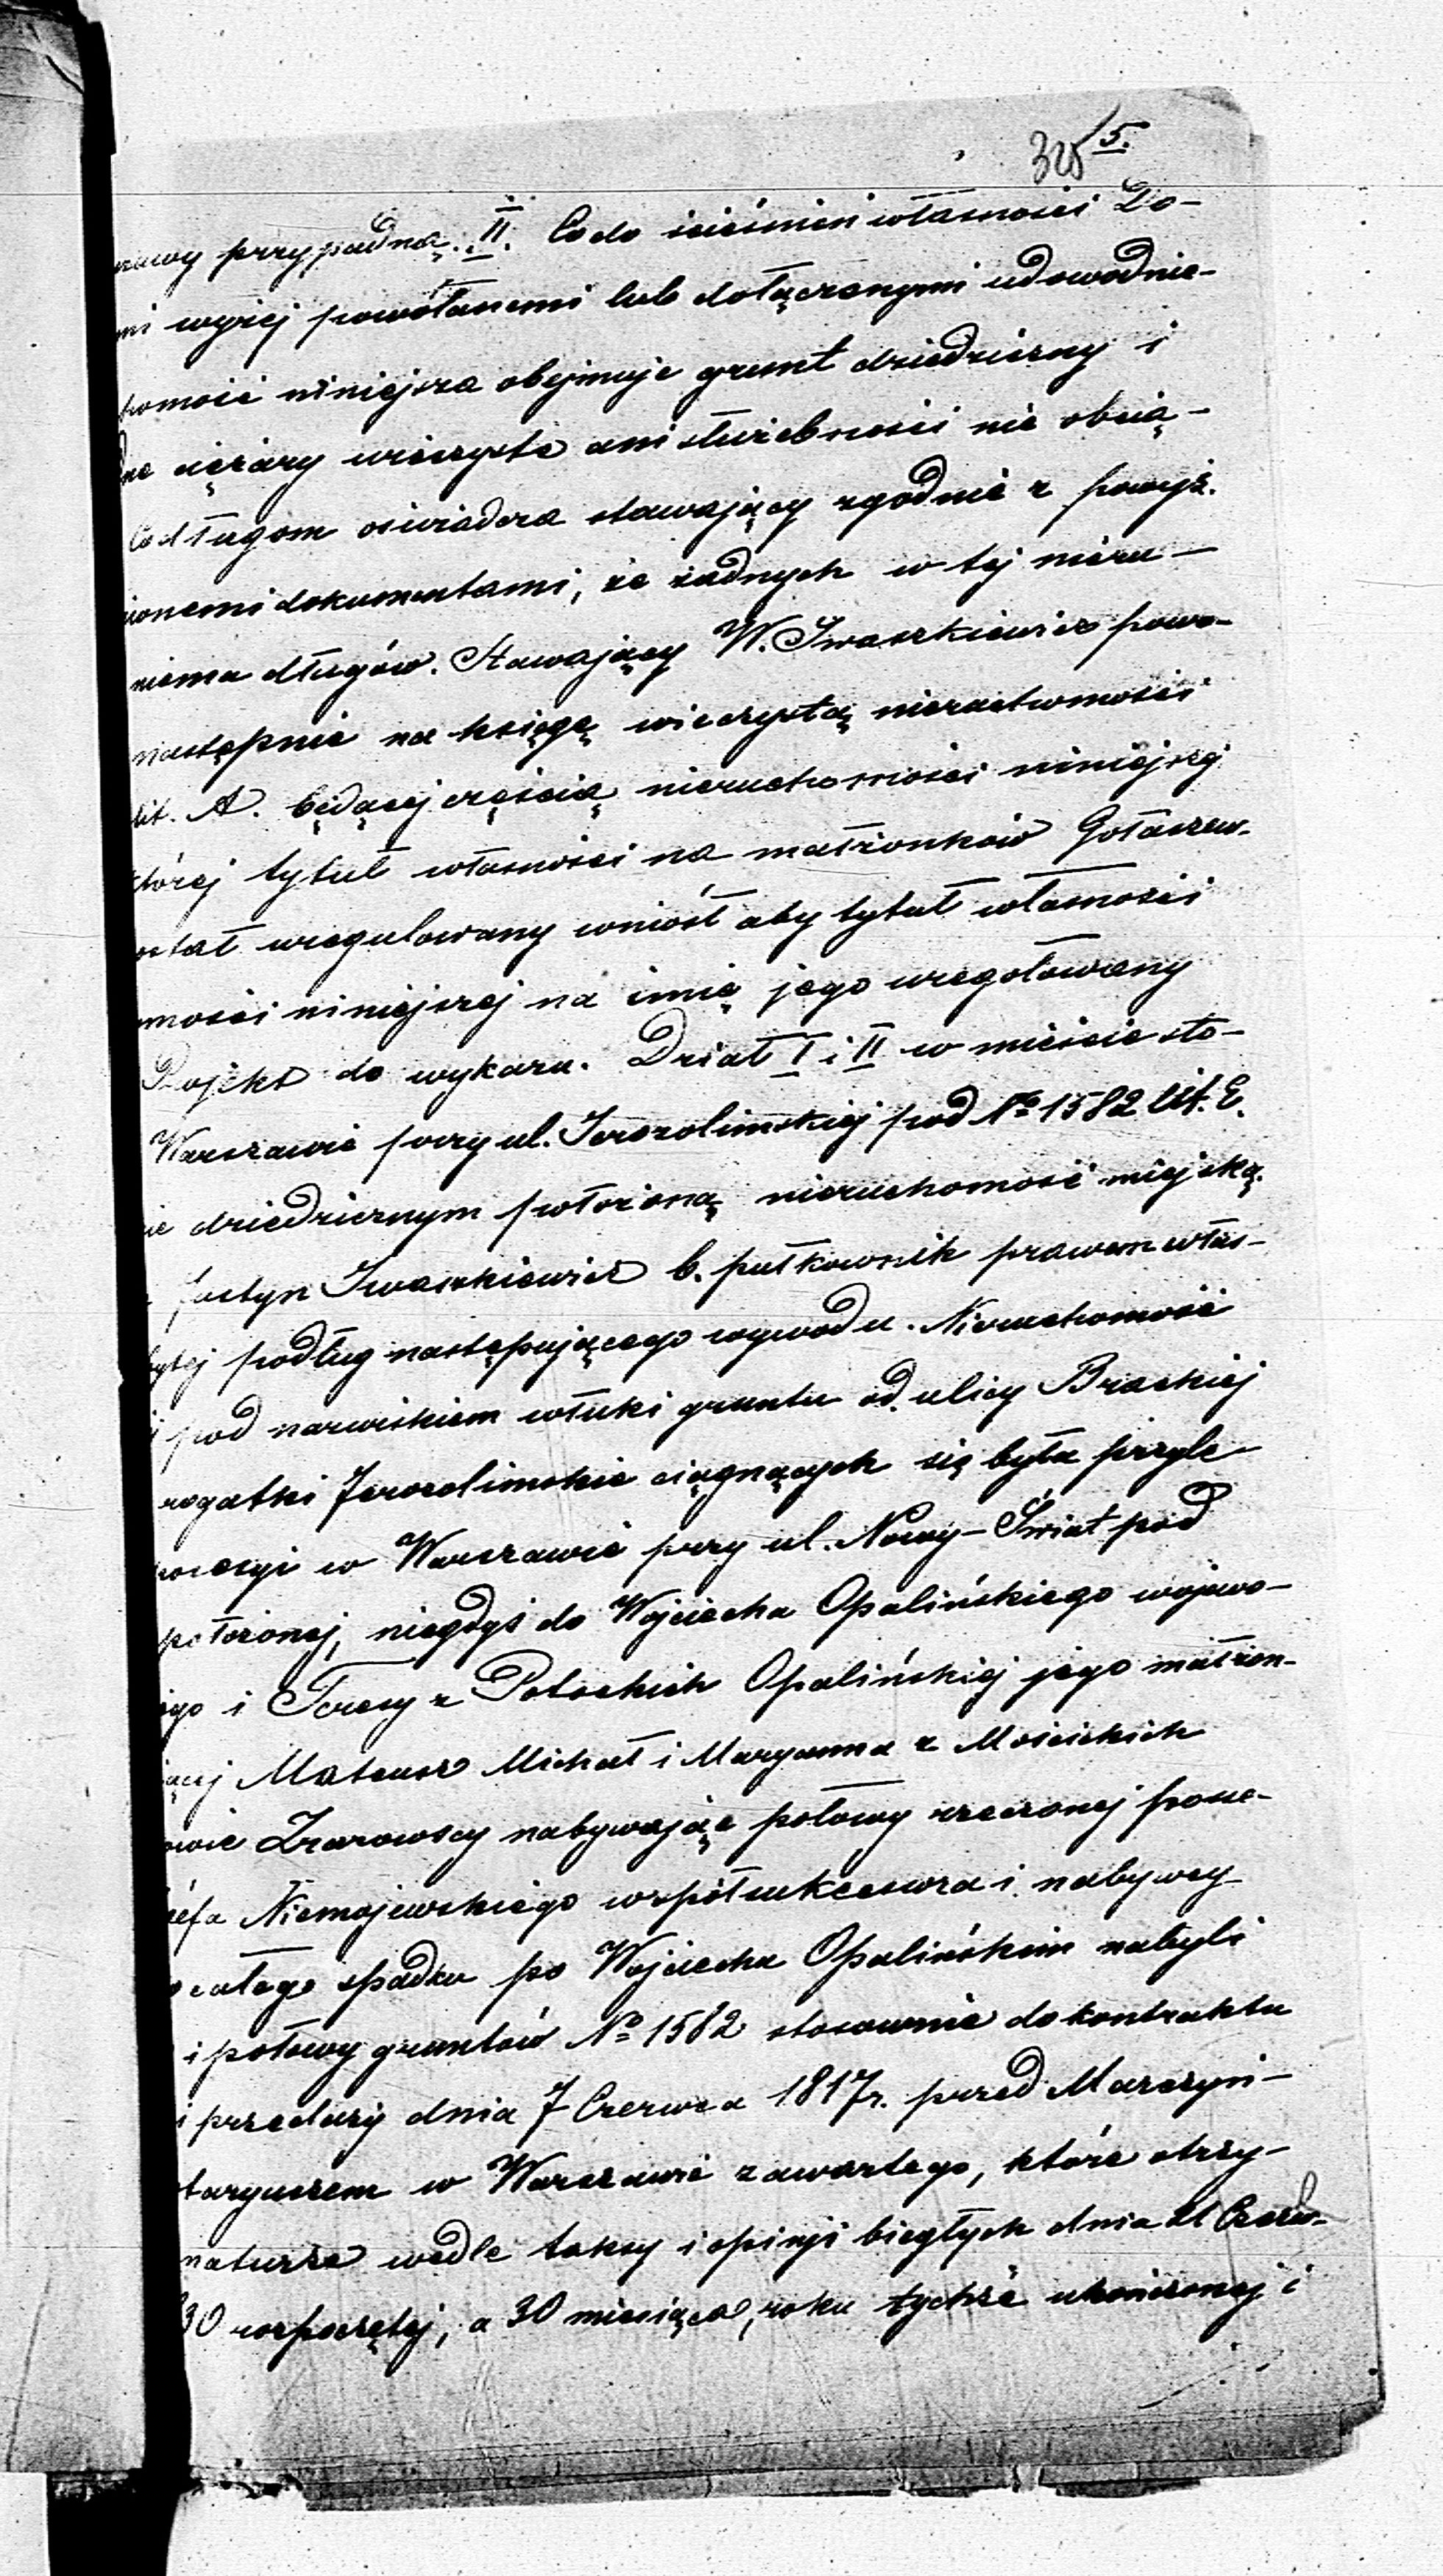 325 5.
rawy przypadną. II. Co do ścieśnień własności Do-
mi wyżej powołanemi lub dołączonymi udowodnie-
homość niniejsza obejmuje grunt dziedziczny i
ne ciężary wieczyste ani służebności nie obcią-
Co długom oświadcza stawający zgodnie z powyż.
ionemi dokumentami, że żadnych w tej nieru-
niema długów. Stawający W. Iwaszkiewicz powo-
następnie na księgę wieczystą nieruchomości
lit. A. będącej częścią nieruchomości niniejszej
której tytuł własności na małżonków Gołaszew-
ostał uregulowany wniósł aby tytuł własności
omości niniejszej na imię jego uregulowany
Projekt do wykazu. Dział I i II w mieście sto-
Warszawie przy ul. Jerozolimskiej pod No 1582 lit. E.
ie dziedzicznym położoną nieruchomość miejską.
Justyn Iwaszkiewicz b. pułkownik prawem włas-
bytej podług następującego wywodu. Nieruchomość
i pod nazwiskiem włuki gruntu od ulicy Brackiej
rogatki Jerozolimskie ciągnących się była przyle-
posesyi w Warszawie przy ul. Nowy-Świat pod
położonej, niegdyś do Wojciecha Opalińskiego wojewo-
iego i Teresy z Potockich Opalińskiej jego małżon-
ącej Mateusz Michał i Maryanna z Mościckich
owie Zrarowscy nabywając połowy rzeczonej posse-
zefa Niemojewskiego współsukcesora i nabywcy
całego spadku po Wojciechu Opalińskim nabyli
i połowy gruntów No 1582 stosownie do kontraktu
i przedaży dnia 7 Czerwca 1817r. przed Marczyń-
taryuszem w Warszawie zawartego, które otrzy-
naturze wedle taksy i opinji biegłych dnia 21 Czerw-
30 rozpoczętej, a 30 miesiąca, roku tychże ukończonej i